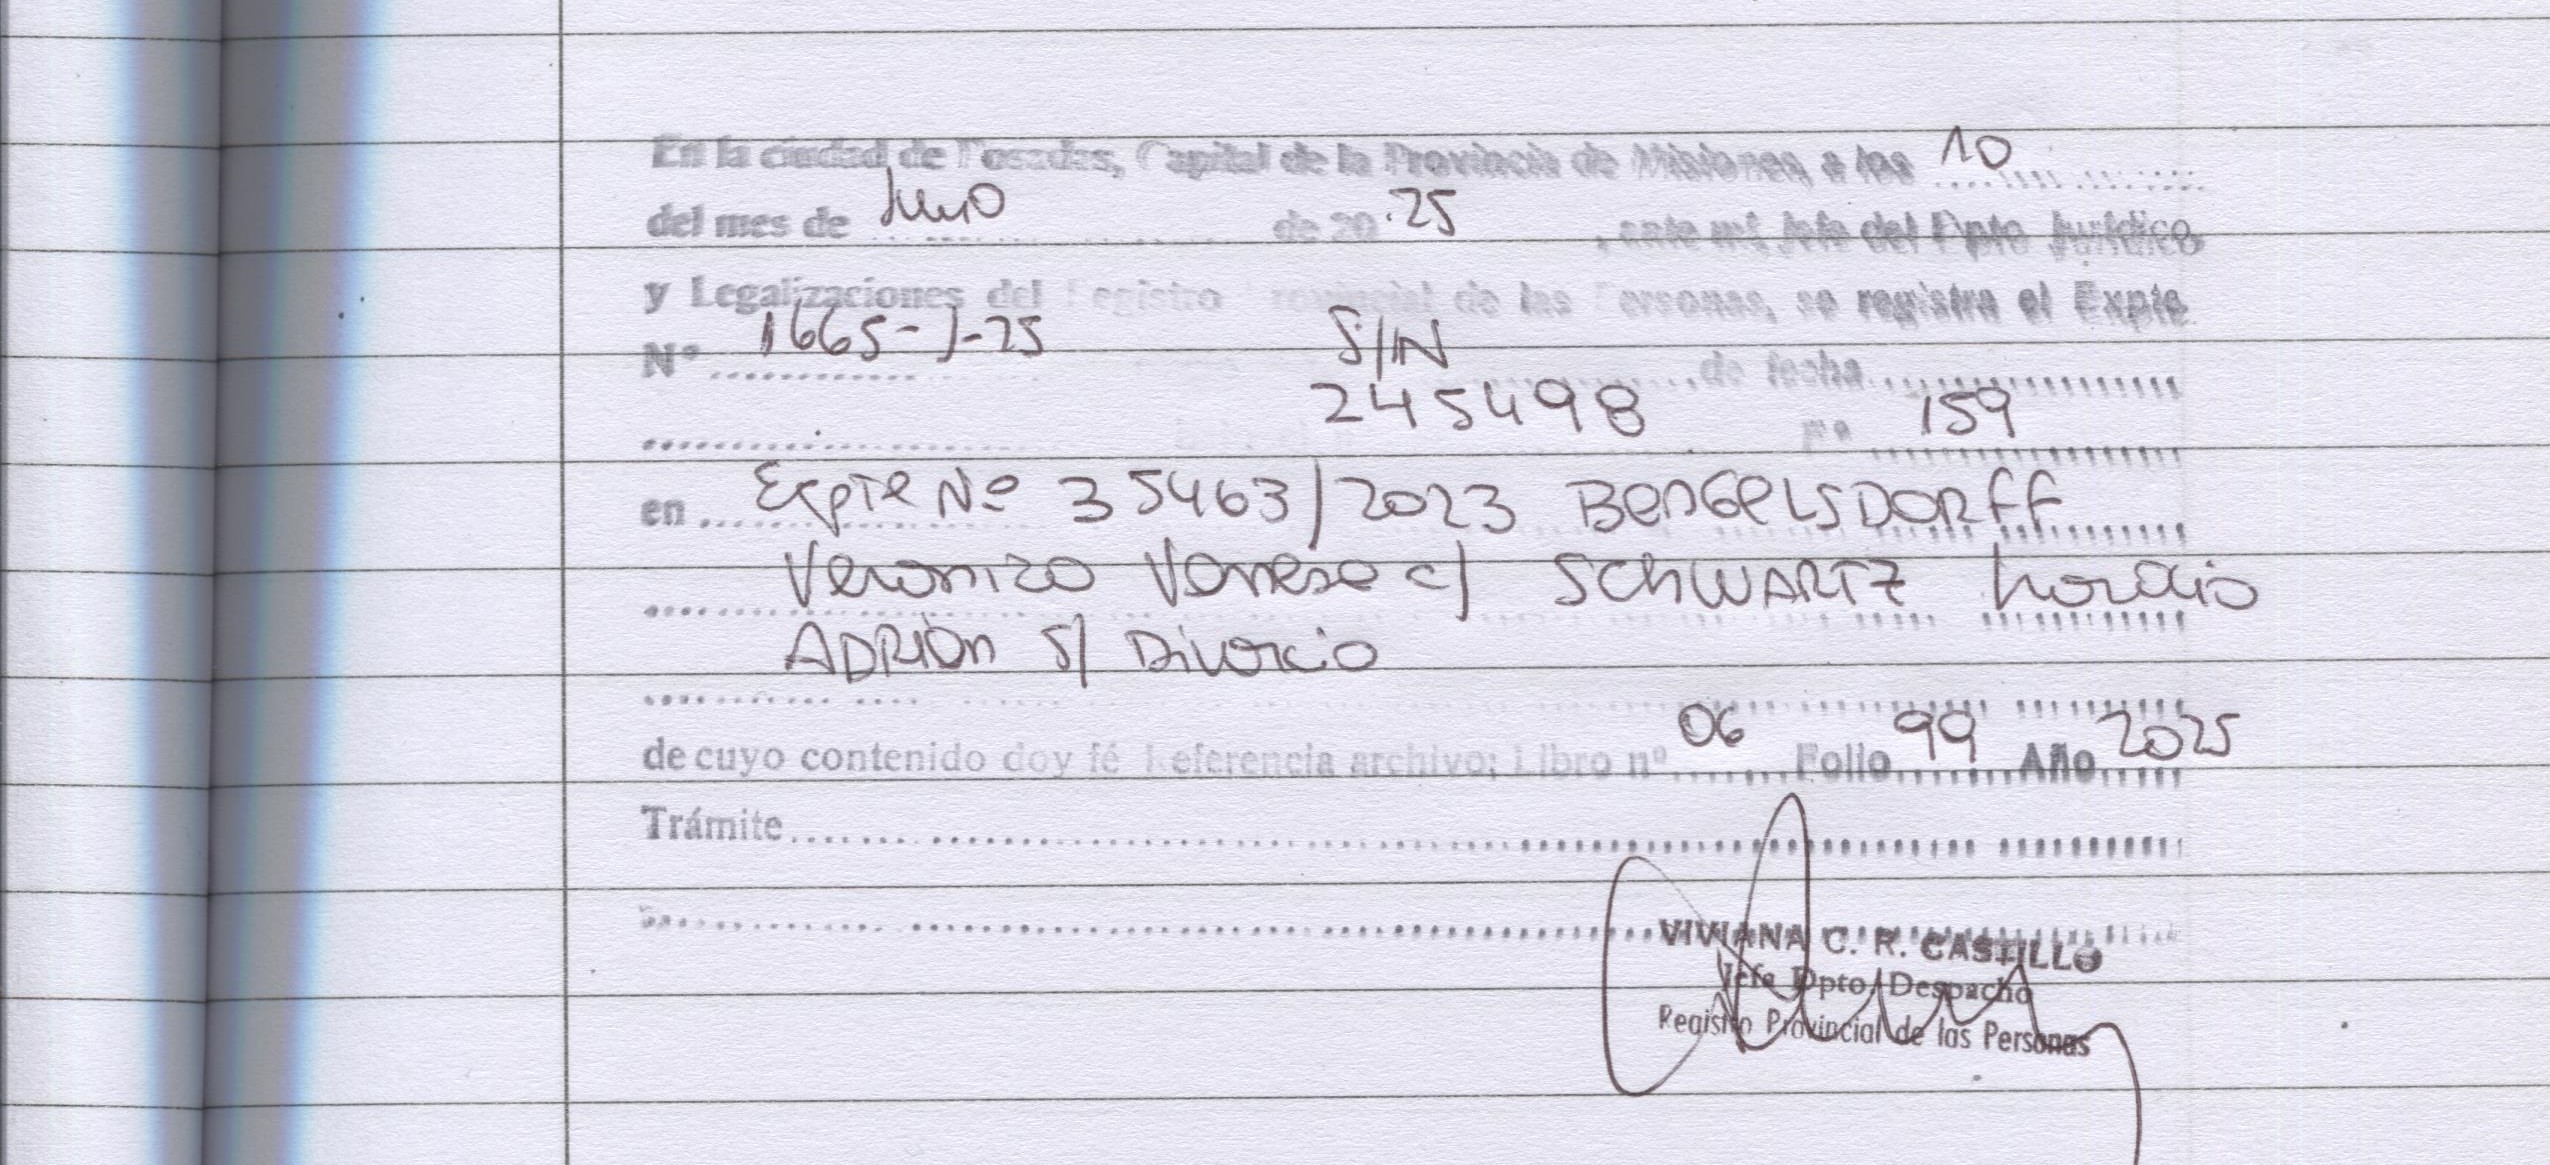 En la ciudad de Posadas, Capital de la Provincia de Misiones, a los 10
del mes de Junio de 20 25 , ante mí, Jefe del Dpto Jurídico
y Legalizaciones del Registro Provincial de las Personas, se registra el Expte
Nº 1665-J-25 S/N de fecha
245498 Fº 159
en Expte Nº 35463/2023 BenGelSDORff
Veronica Vanesa c/ SCHWARTZ horacio
ADRIAn S/ Divorcio
de cuyo contenido doy fé Referencia archivo: Libro nº 06 Folio 99 Año 2025
Trámite
VIVIANA C. R. CASTILLO
Jefa Dpto. Despacho
Registro Provincial de las Personas